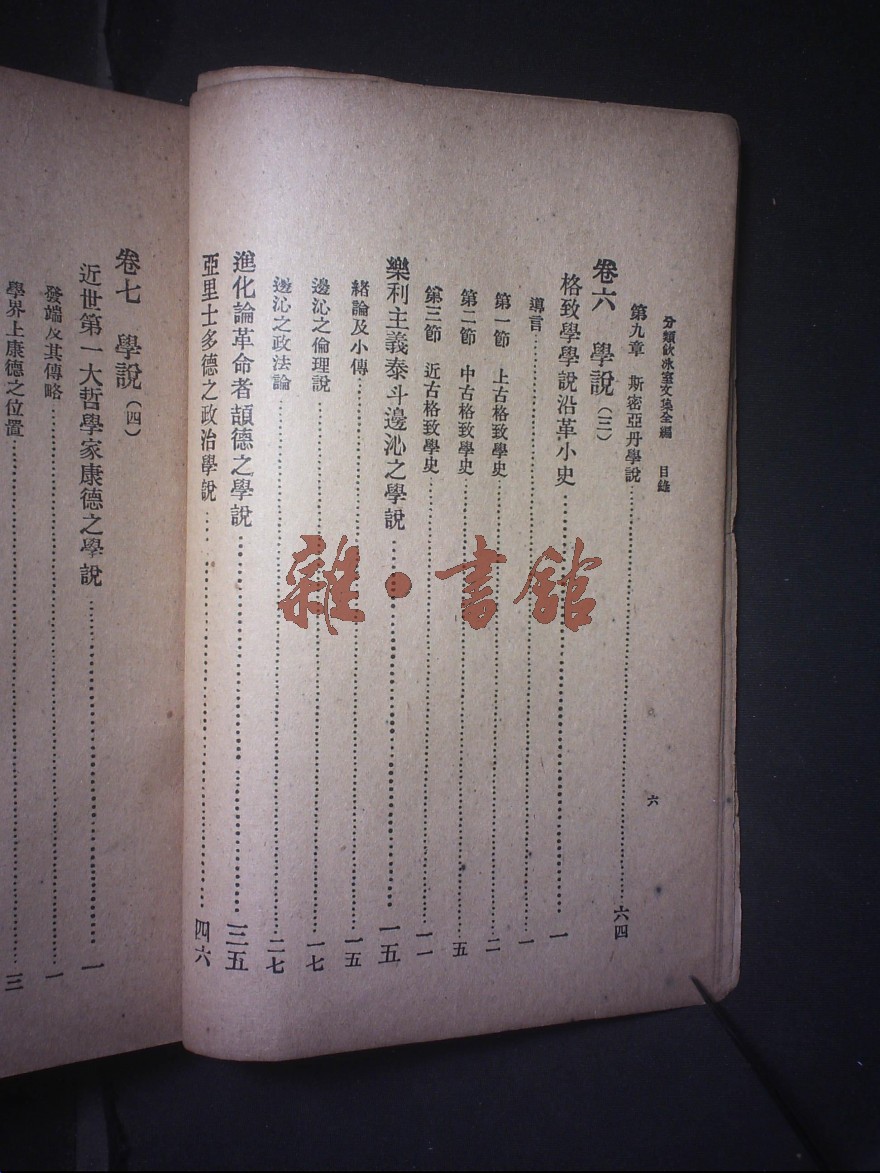 分類飲冰室文集全編　目錄
六
第九章　斯密亞丹學說……六四
卷六　學說（三）
格致學學說沿革小史……一
導言……一
第一節　上古格致學史……二
第二節　中古格致學史……五
第三節　近古格致學史……一一
樂利主義泰斗邊沁之學說……一五
緒論及小傳……一五
邊沁之倫理說……一七
邊沁之政法論……二七
進化論革命者頡德之學說……三五
亞里士多德之政治學說……四六
卷七　學說（四）
近世第一大哲學家康德之學說……一
發端及其傳略……一
學界上康德之位置……三
雜·書館